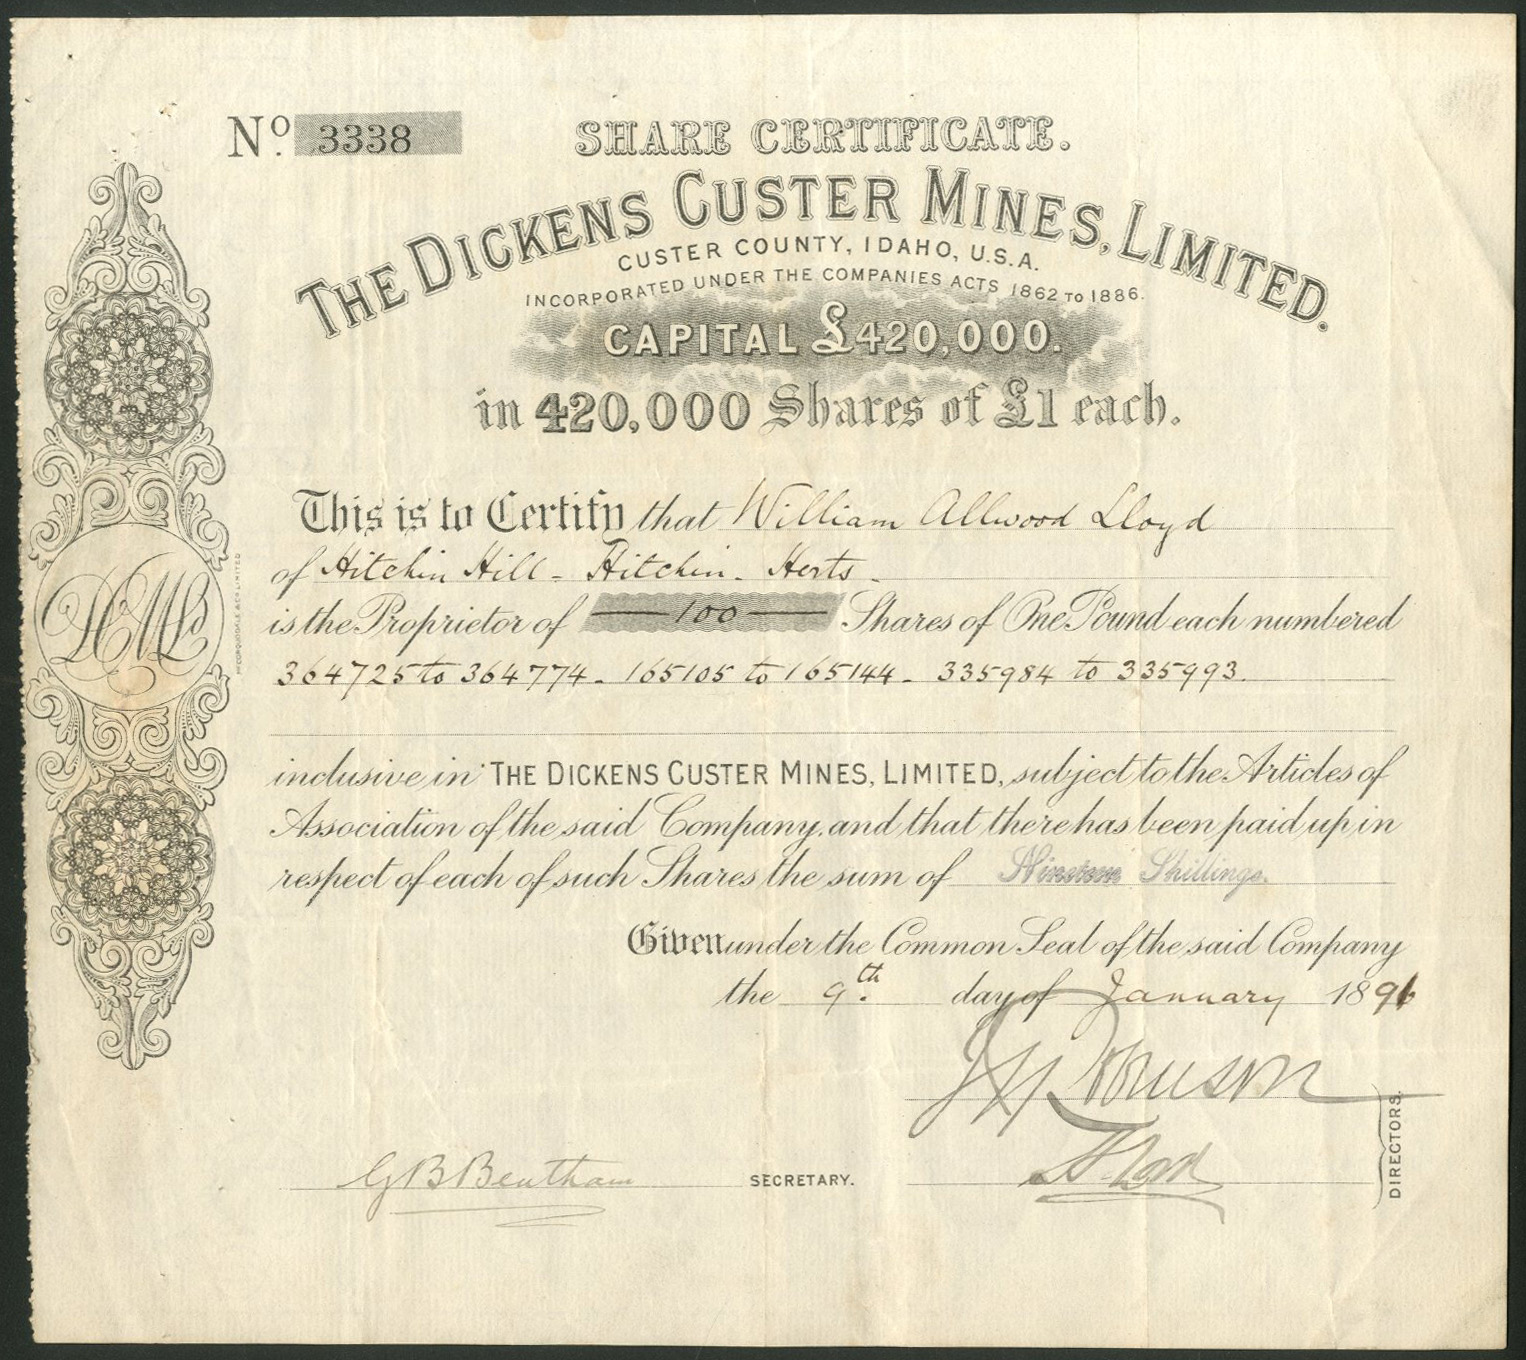 No. 3338
SHARE CERTIFICATE.
THE DICKENS CUSTER MINES, LIMITED.
CUSTER COUNTY, IDAHO, U.S.A.
INCORPORATED UNDER THE COMPANIES ACTS 1862 TO 1886.
CAPITAL £420,000.
in 420,000 Shares of £1 each.
This is to Certify that William Allwood Lloyd
of Hitchin Hill - Hitchin - Herts -
is the Proprietor of 100 Shares of One Pound each numbered
364725 to 364774 - 165105 to 165144 - 335984 to 335993.
inclusive in THE DICKENS CUSTER MINES, LIMITED, subject to the Articles of
Association of the said Company, and that there has been paid up in
respect of each of such Shares the sum of Nineteen Shillings.
Given under the Common Seal of the said Company
the 9th. day of January 189
G B Bentham SECRETARY.
DIRECTORS.